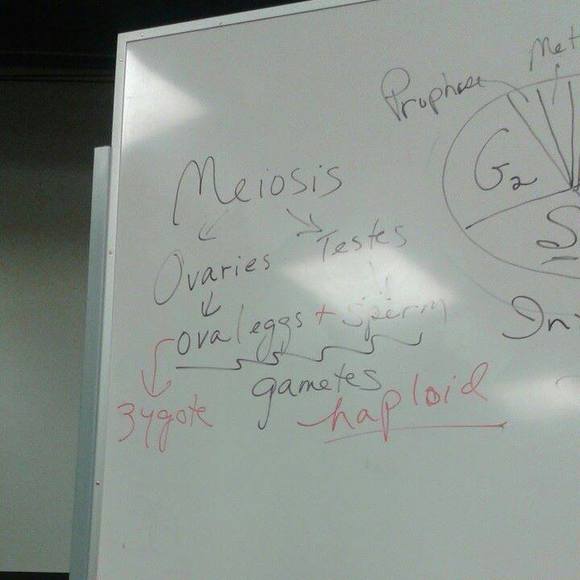 Meiosis
Ovaries Testes
ova/eggs + sperm
gametes
zygote haploid
Prophase Met
G2
S
In